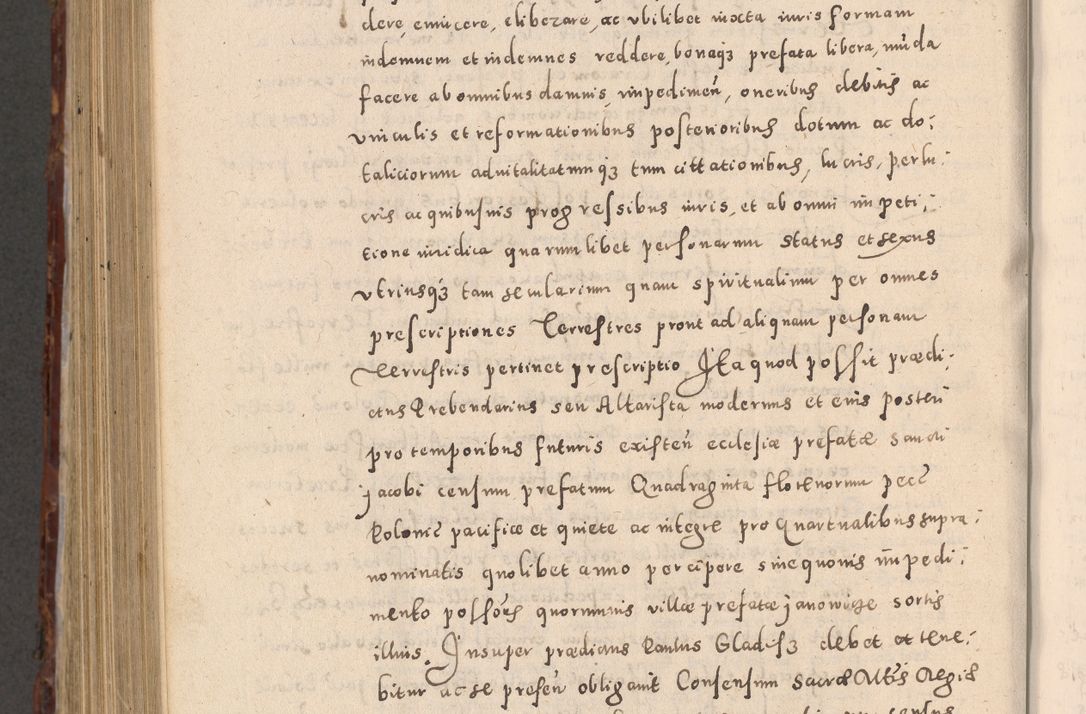 dere, emicere, eliberare, ac vbilibet iuxta iuris formam
indemnem et indemnes reddere, bonaq₃ prefata libera, mūda
facere ab omnibus damnis, impedimeñ, oneribus debitis ac
vinculis et reformationibus posterioribus dotum ac do:
taliciorum advitalitatumq₃ tum cittationibus, lucris, perlu:
cris ac quibusuis progressibus iuris, et ab omni impeti:
tione iuridica quarumlibet personarum status et sexus
vtriusq₃ tam secularium quam spiritualium per omnes
prescriptiones Terrestres prout ad aliquam personam
Terrestris pertinet prescriptio Ita quod possit prædi:
ctus Prebendarius seu Altarista modernus et eius posteri
pro temporibus futuris existeñ ecclesiæ prefatæ sancti
Jacobi censum prefatum Quadraginta florenorum pecē
Poloniē pacifice et quiete ac integre pro Quartualibus supra:
nominatis quolibet anno percipere sine quouis impedi:
mento possōēs quorumuis villæ prefatæ Janowicze sortis
illius. Insuper prædictus Paulus Gladisz debet et tene:
bitur ac se preseñ obligauit Consensum Sacræ Mtis Regiæ